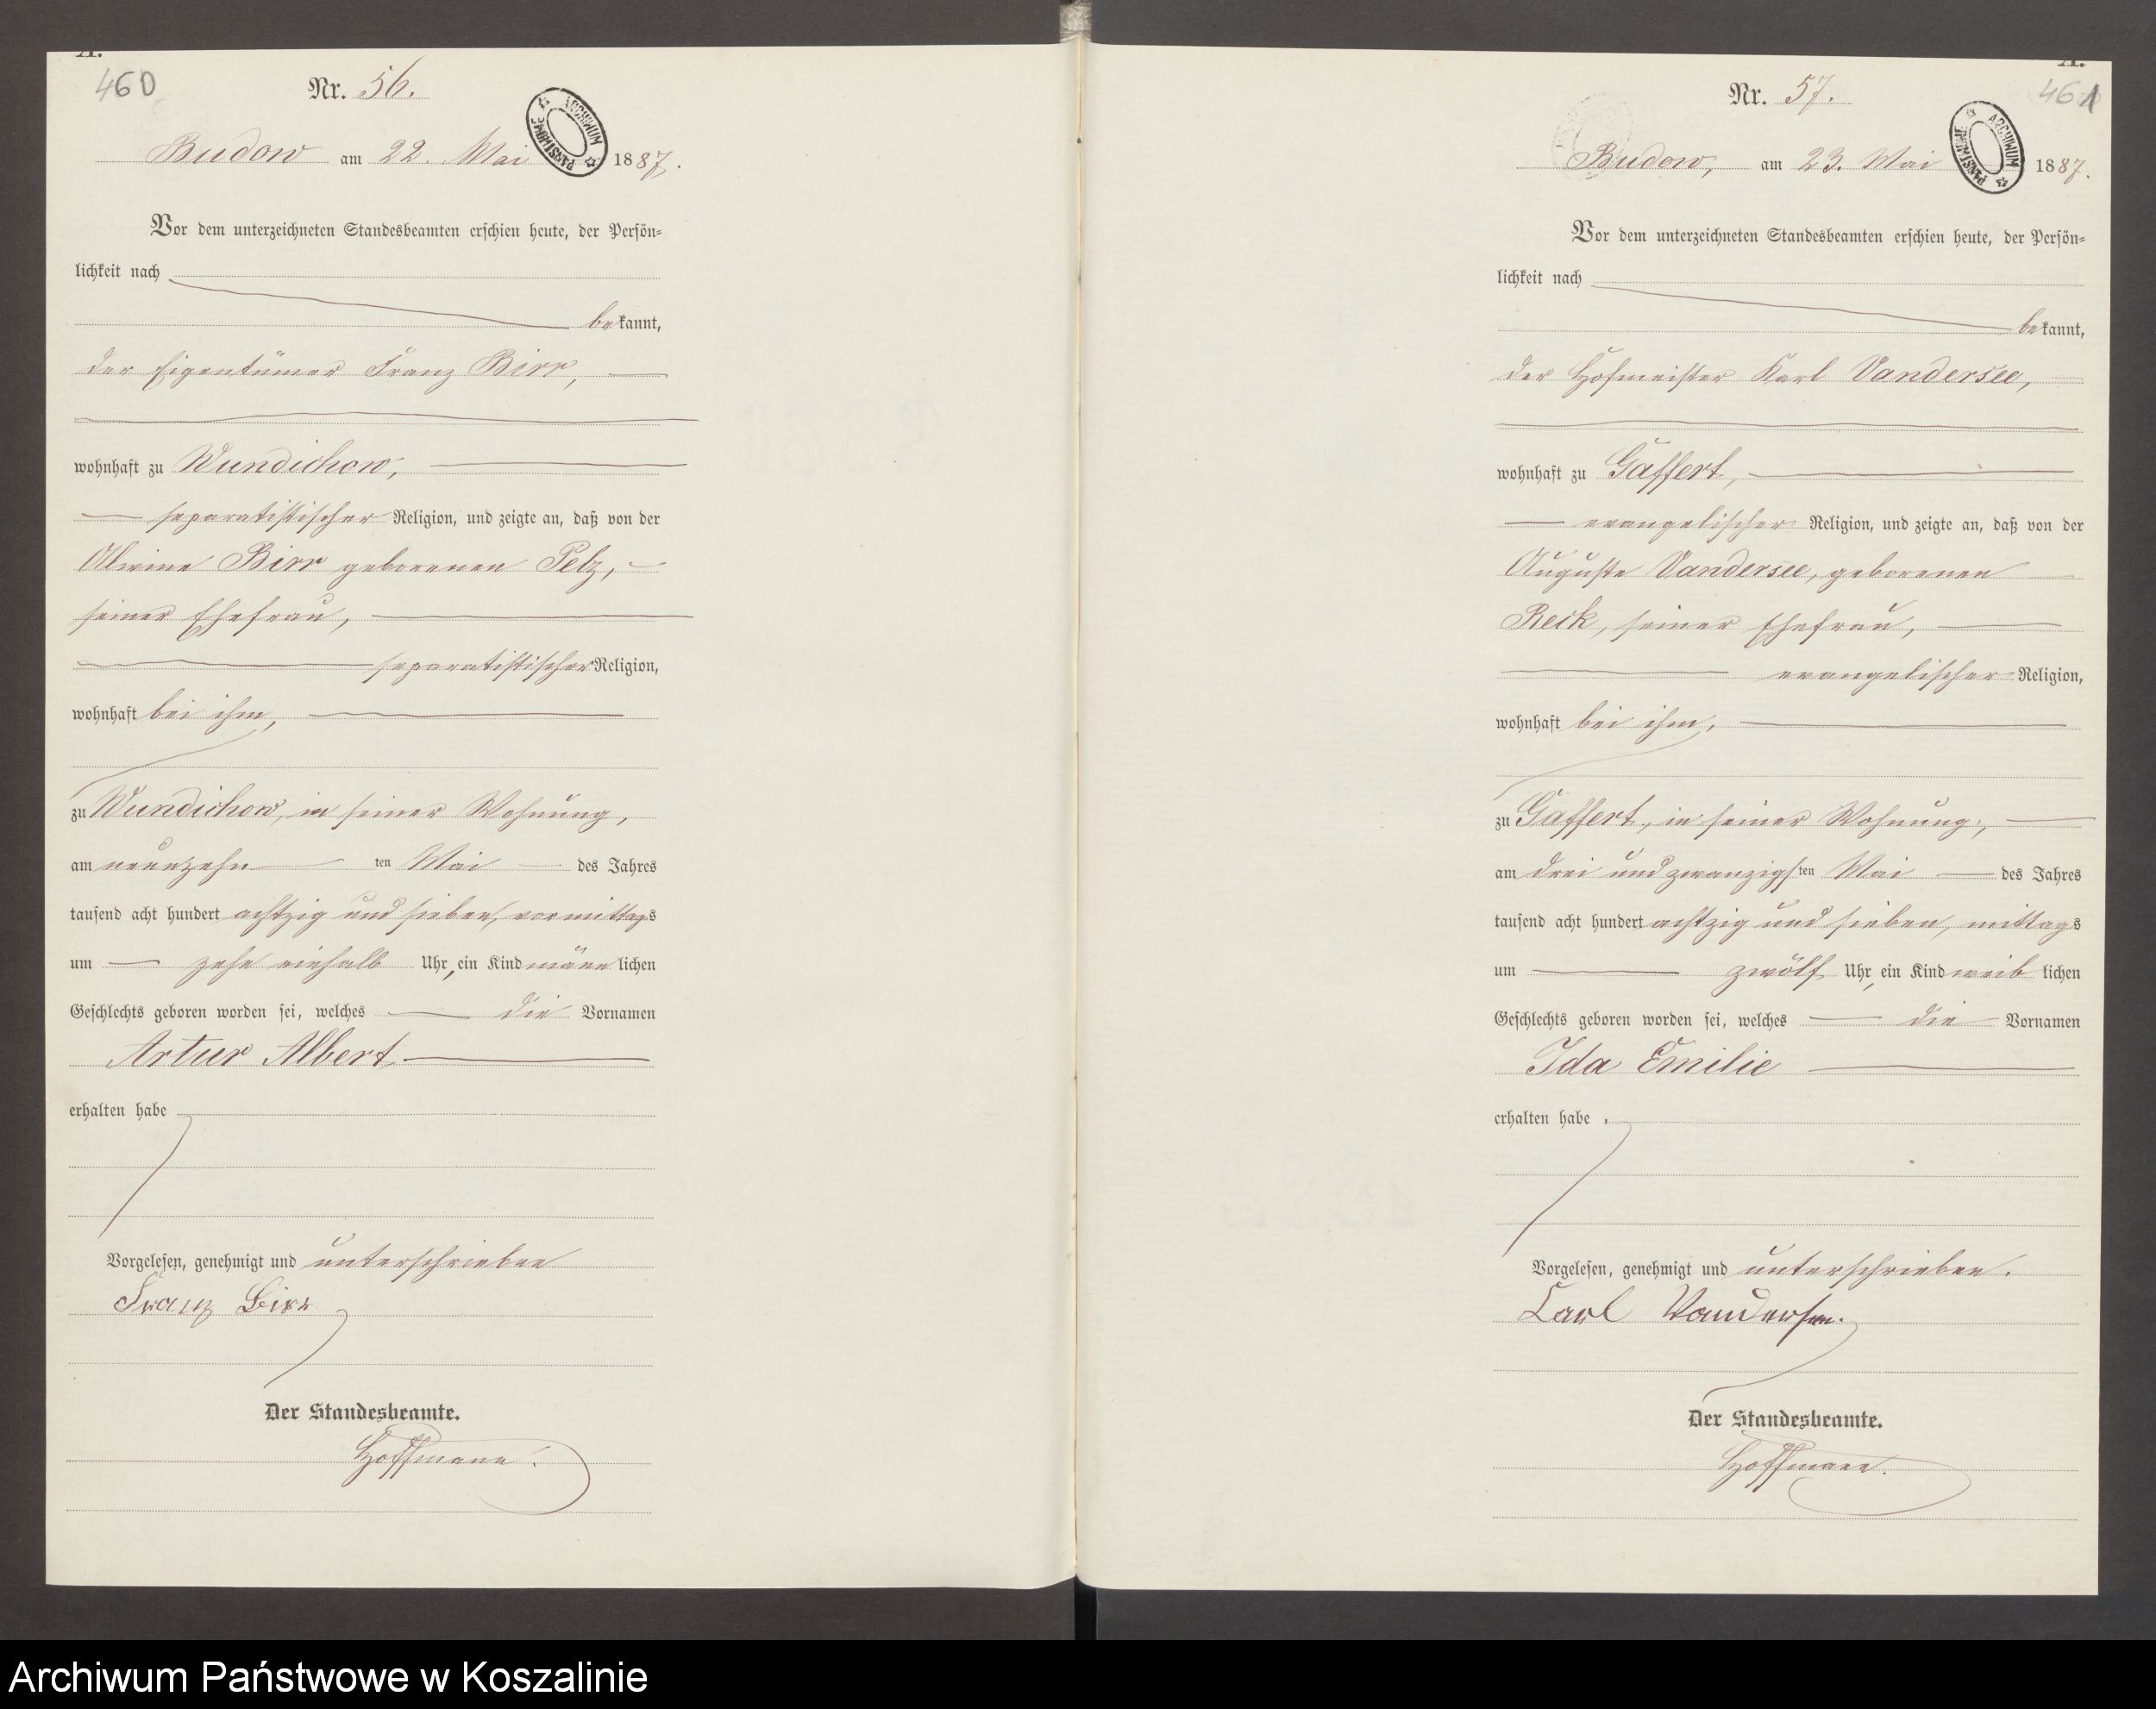 A.
460
Nr. 56.
ARCHIWUM PAŃSTWOWE
Budow am 22. Mai 1887.
Vor dem unterzeichneten Standesbeamten erschien heute, der Persön-
lichkeit nach
bekannt,
der Eigentümer Franz Birr,
wohnhaft zu Wundichow,
separatistischer Religion, und zeigte an, daß von der
Alwine Birr geborenen Pelz,
seiner Ehefrau,
separatistischer Religion,
wohnhaft bei ihm,
zu Wundichow, in seiner Wohnung,
am neunzehn ten Mai des Jahres
tausend acht hundert achtzig und sieben, vormittags
um zehn einhalb Uhr, ein Kind männlichen
Geschlechts geboren worden sei, welches die Vornamen
Artur Albert
erhalten habe
Vorgelesen, genehmigt und unterschrieben
Franz Birr
Der Standesbeamte.
Hoffmann.
A.
461
Nr. 57.
ARCHIWUM PAŃSTWOWE
Budow, am 23. Mai 1887.
Vor dem unterzeichneten Standesbeamten erschien heute, der Persön-
lichkeit nach
bekannt,
der Hofmeister Karl Vandersee,
wohnhaft zu Gaffert,
evangelischer Religion, und zeigte an, daß von der
Auguste Vandersee, geborenen
Reck, seiner Ehefrau,
evangelischer Religion,
wohnhaft bei ihm,
zu Gaffert, in seiner Wohnung,
am drei und zwanzigsten Mai des Jahres
tausend acht hundert achtzig und sieben, mittags
um zwölf Uhr, ein Kind weiblichen
Geschlechts geboren worden sei, welches die Vornamen
Ida Emilie
erhalten habe.
Vorgelesen, genehmigt und unterschrieben.
Carl Vandersee.
Der Standesbeamte.
Hoffmann.
Archiwum Państwowe w Koszalinie